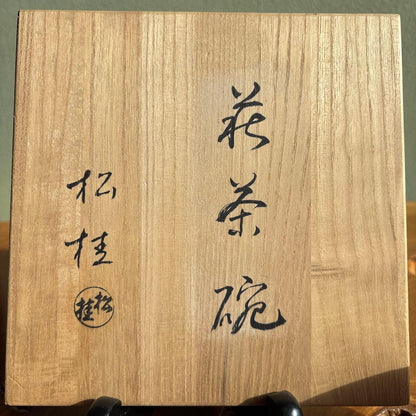 萩茶碗
松桂
松桂